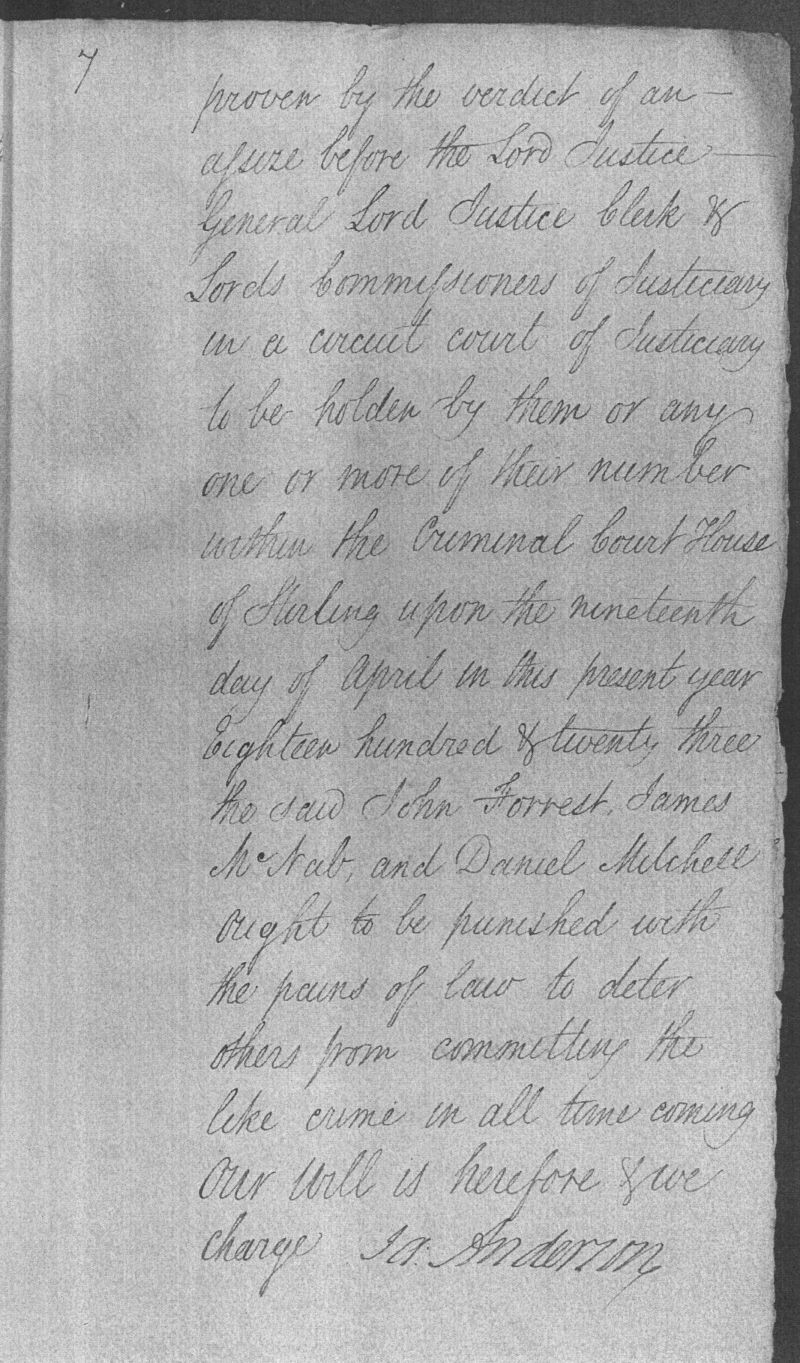 7
proven by the verdict of an —
assize before the Lord Justice —
General Lord Justice Clerk &
Lords Commissioners of Justiciary
in a circuit court of Justiciary
to be holden by them or any
one or more of their number
within the Criminal Court House
of Stirling upon the nineteenth
day of April in this present year
Eighteen hundred & twenty three
the said John Forrest, James
McNab, and Daniel Mitchell
ought to be punished with
the pains of law to deter
others from committing the
like crime in all time coming
Our Will is herefore & we
charge Ja. Anderson